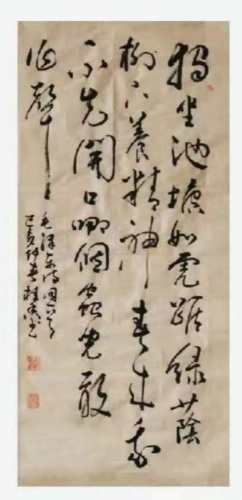 獨坐池塘如虎踞綠蔭
樹下養精神春來我
不先開口哪個蟲兒敢
作聲
毛澤東詩
己亥仲春